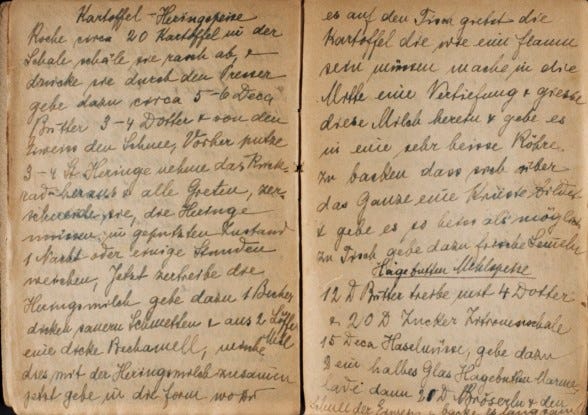 Kartoffel-Heringspeise
Koche circa 20 Kartoffel in der
Schale schäle sie rasch ab &
drücke sie durch den Presser
gebe dazu circa 5-6 Deca
Butter 3-4 Dotter & von den
den Schnee, Vorher putze
3-4 St Heringe nehme das Rück-
rad heraus & alle Greten, zer-
schneide sie, die Heringe
müssen im geputzten Zustand
1 Nacht oder einige Stunden
weichen, Jetzt zerreibe die
Heringsmilch gebe dazu 1 Becher
dicken sauern Schmetten & aus 2 Löffel
Mehl
eine dicke Bechamell,
dies mit der Heringsmilch zusamen
jetzt gebe in die form wo
es auf den Tisch giebst die
Kartoffel die wie ein flaum
sein müssen mache in die
Mitte eine Vertiefung & giesse
diese Milch herein & gebe es
in eine sehr heisse Röhre
zu backen dass sich über
das Ganze eine Kruste bildet
& gebe es so heiss als möglich
zu Tisch gebe dazu frische Semeln
Hagebutten Mehlspeise
12 D Butter treibe mit 4 Dotter
& 20 D Zucker Zitronenschale
15 Deca Haselnüsse, gebe dazu
ein halbes Glas Hagebutten Marme-
lade dann D Bröserln & den
Schnee der